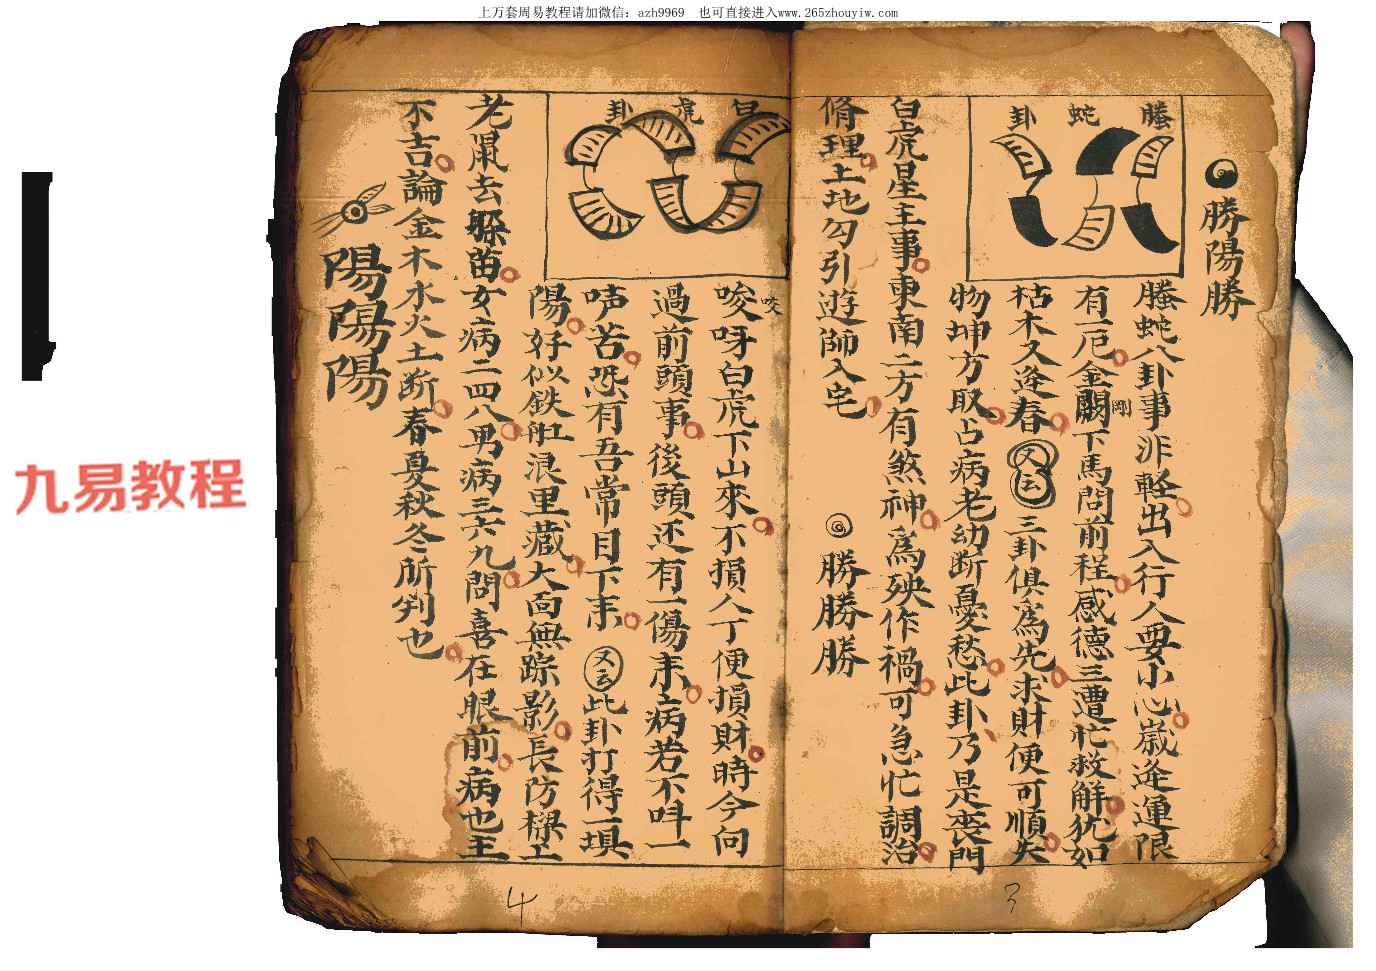 上万套周易教程请加微信：azh9969　也可直接进入www.265zhouyiw.com
勝陽勝
螣蛇卦
螣蛇八卦事非軽出入行人要小心歲逄運限
有一厄金闕剛下馬問前程感德三遭忙救解犹如
枯木又逄春又云三卦俱為先求財便可順失
物坤方取占病老幼断憂愁此卦乃是喪門
白虎星主事東南二方有煞神為殃作禍可急忙調治
脩理土地勾引遊師入宅
勝勝勝
白虎卦
唆咬呀白虎下山來不損人丁便損財時今向
過前頭事後頭还有一傷来病若不叫一
声苦恐有吾常目下来又云此卦打得一填
陽好似鉄船浪里藏大向無踪影長防樑上
老鼠去躲苗女病二四八男病三六九問喜在眼前病也主
不吉論金木水火土断春夏秋冬所判也
陽陽陽
3
4
九易教程